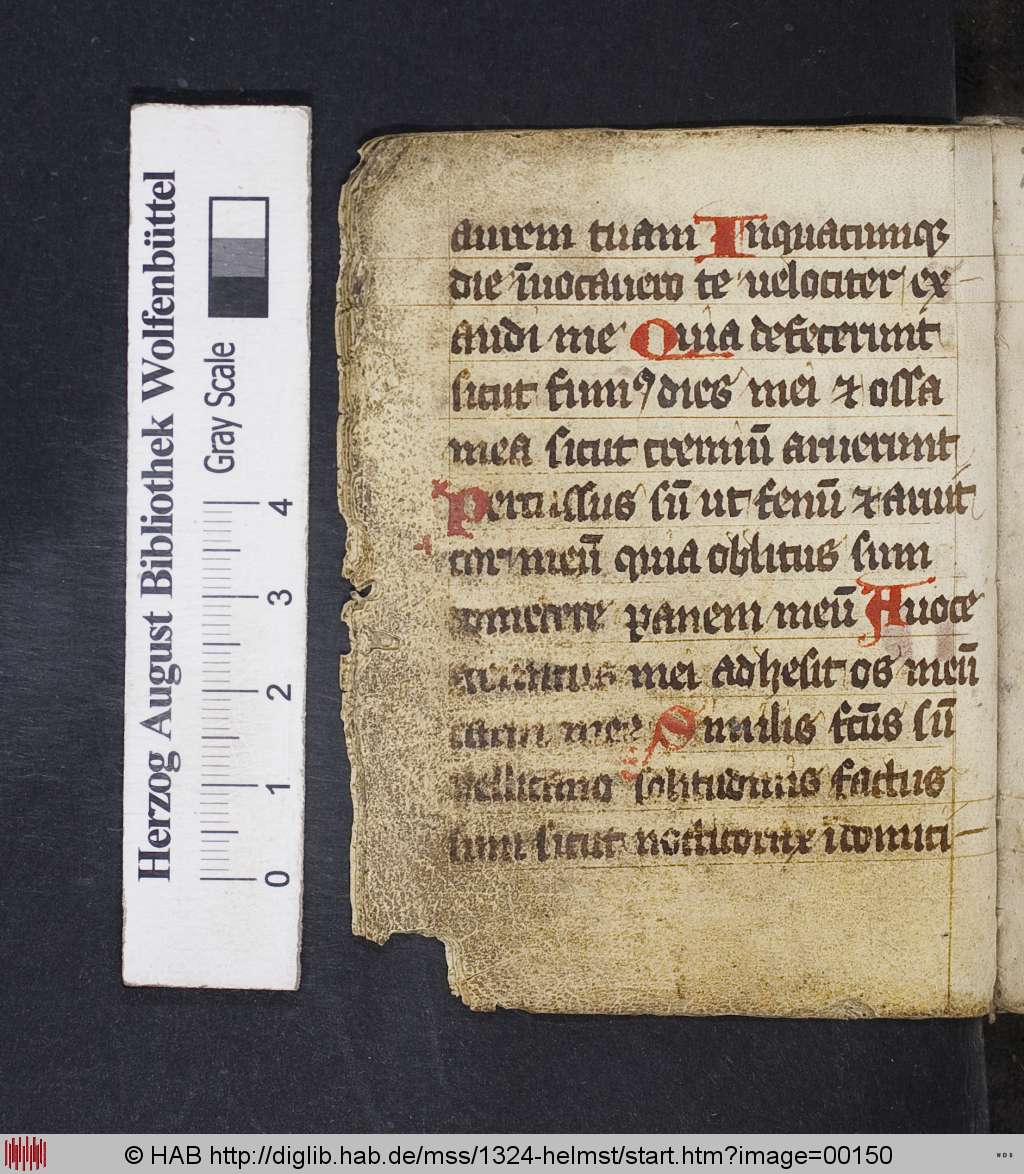 Herzog August Bibliothek Wolfenbüttel
Gray Scale
0 1 2 3 4
aurem tuam Inquacumqꝫ
die īuocauero te uelociter ex
audi me Quia defecerunt
sicut fumꝰ dies mei ⁊ ossa
mea sicut cremiū aruerunt
Percussus sū ut fenū ⁊ aruit
cor meū quia oblitus sum
comedere panem meū Auoce
gemitus mei adhesit os meū
carni mee Similis fc̄us sū
pellicano solitudinis factus
sum sicut nocticorax ī domici
© HAB http://diglib.hab.de/mss/1324-helmst/start.htm?image=00150